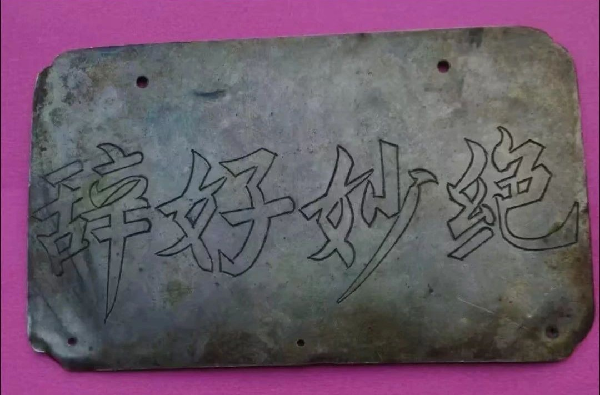 辞好妙绝